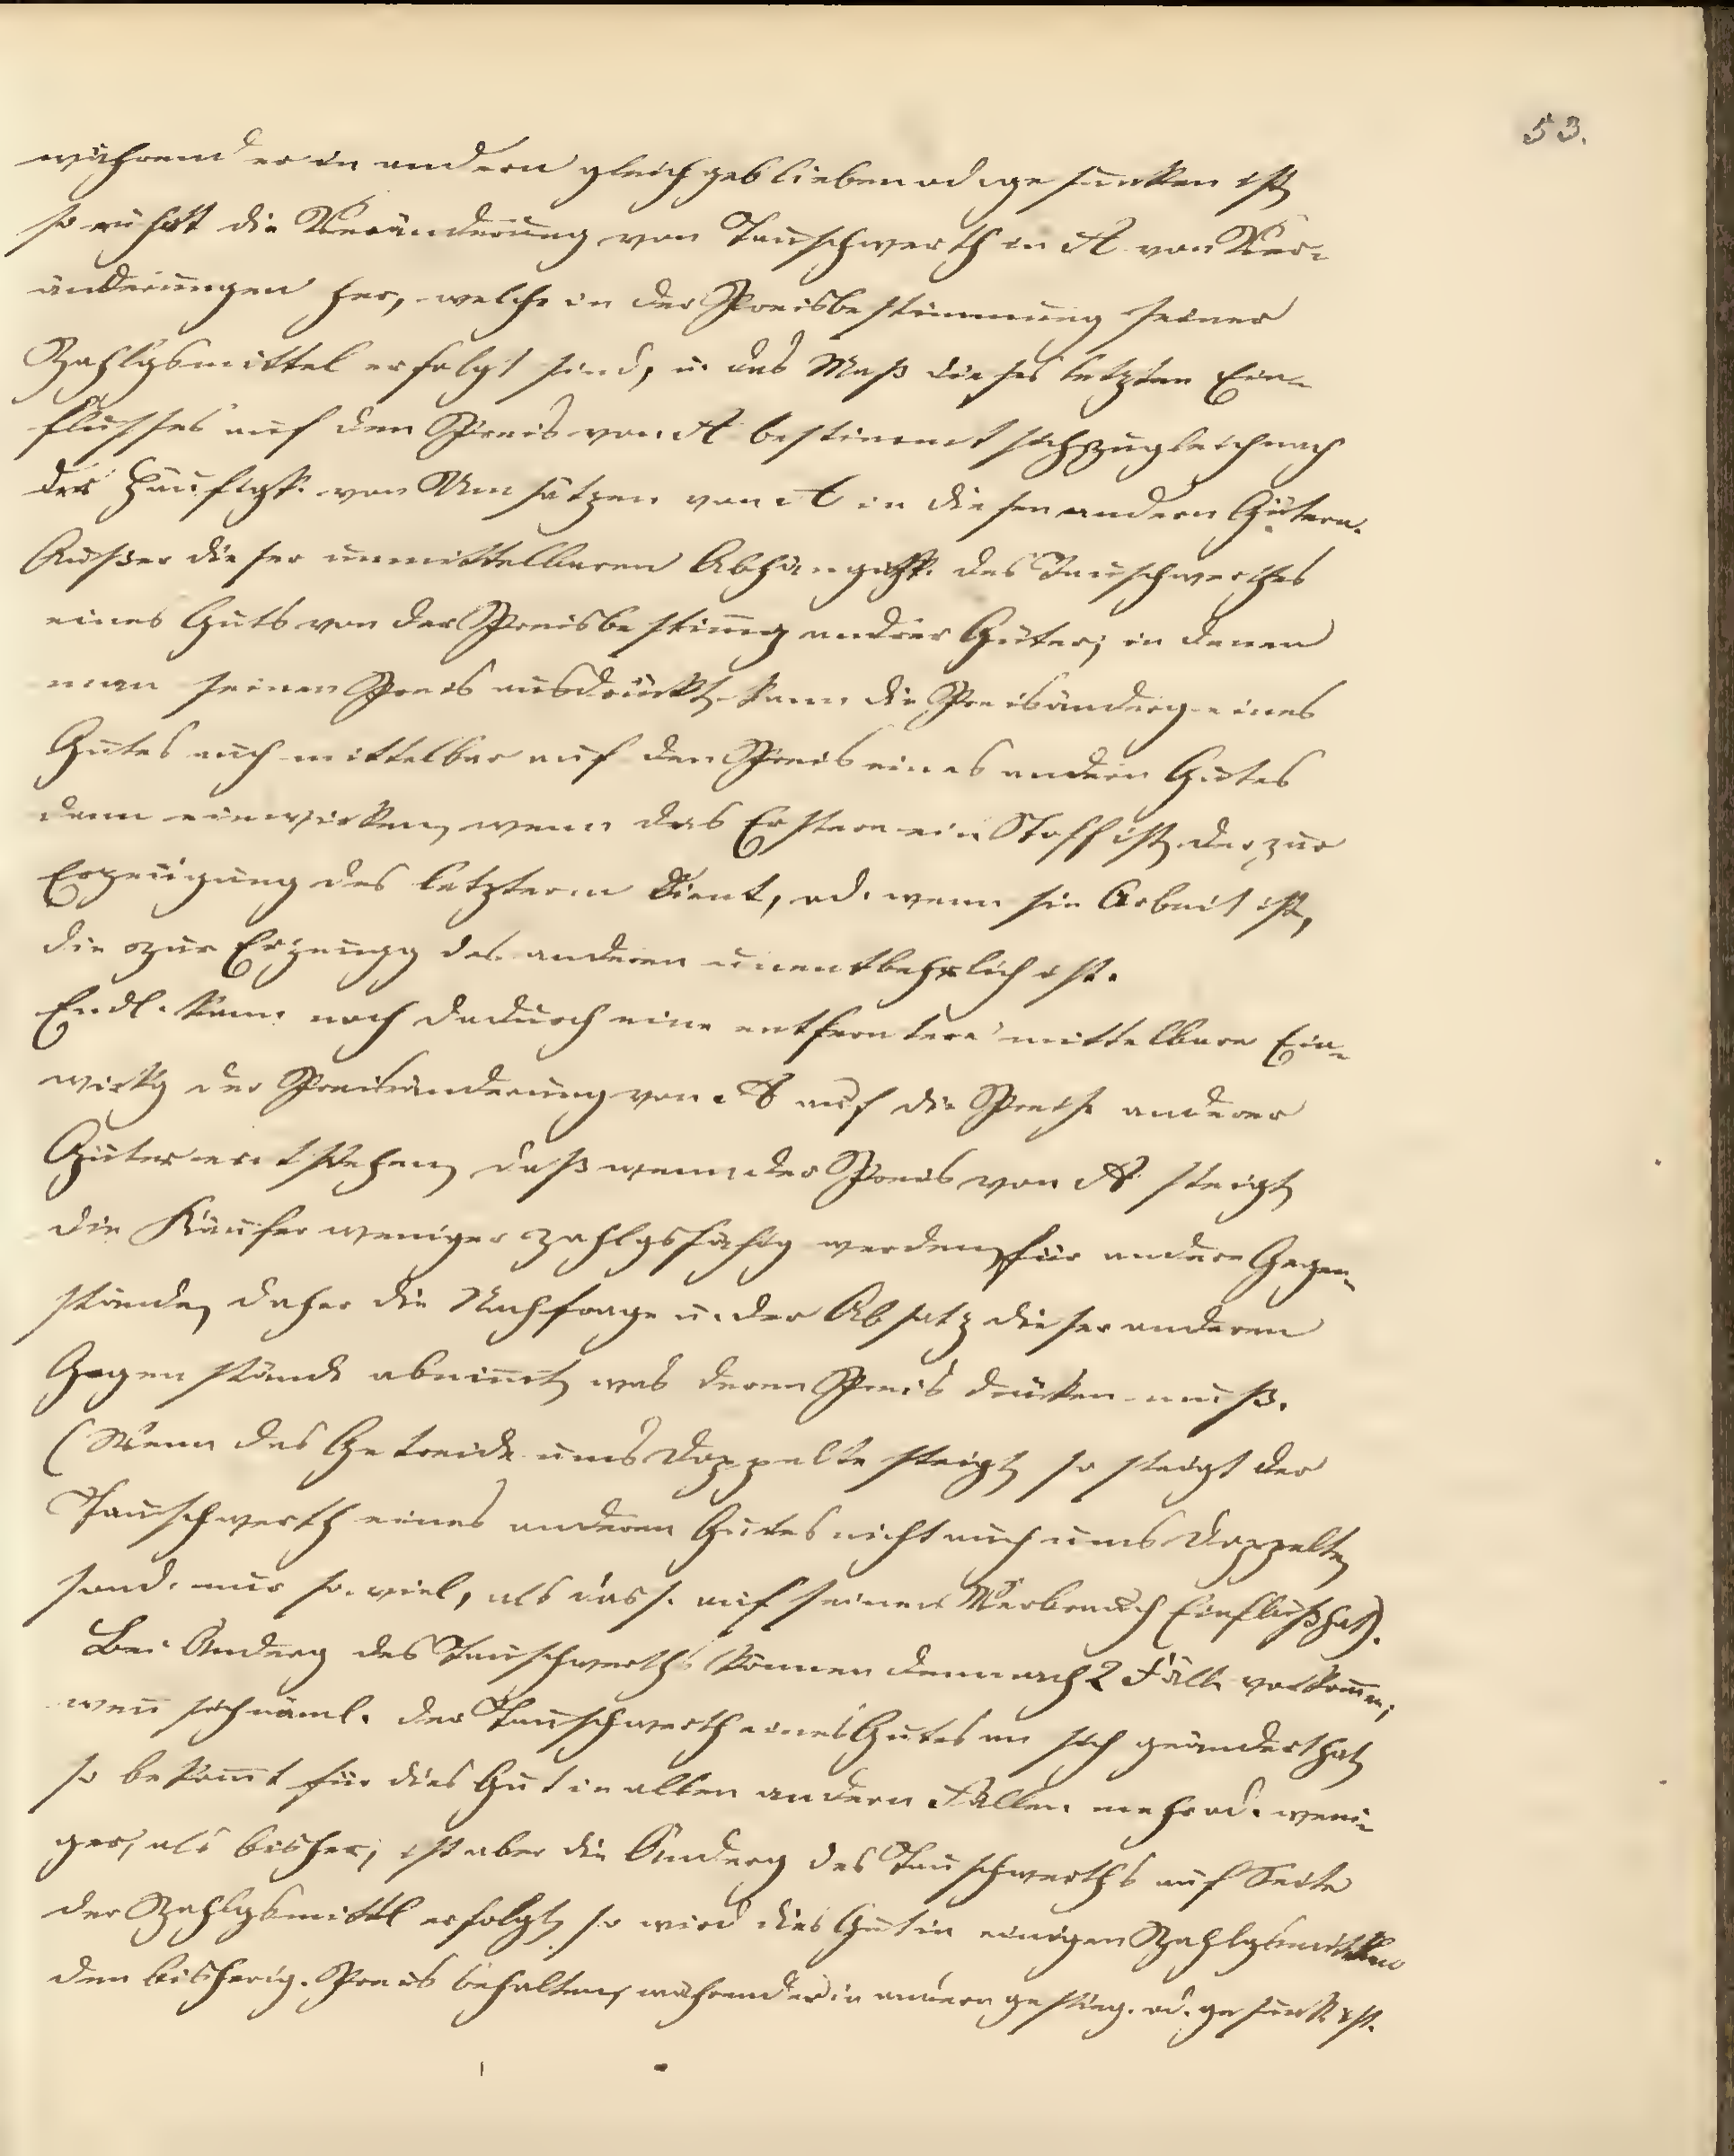 53.
während er in andern gleich geblieben od. gesunken ist,
so rührt die Veränderung von Tauschwerth in A von Ver-
änderungen her, welche in der Preisbestimmung seiner
Zahlgsmittel erfolgt sind, u. das Maß dieses letzten Ein-
flusses auf den Preis von A bestimmt sich zugleich nach
der Häufigk. von Umsätzen von A in diesen andern Gütern.
Außer dieser unmittelbaren Abhängigk. des Tauschwerthes
eines Guts von der Preisbestimg andrer Güter, in denen
man seinen Preis ausdrückt, kann die Preisänderg eines
Gutes auch mittelbar auf den Preis eines andern Gutes
dann einwirken, wenn das Erstere ein Stoff ist, der zur
Erzeugung des letzteren dient, od. wenn sie Arbeit ist,
die zur Erzeugg des anderen unentbehrlich ist.
Endl. kann noch dadurch eine entferntere mittelbare Ein-
wirkg der Preisänderung von A auf die Preise anderer
Güter entstehen, daß wenn der Preis von A steigt,
die Käufer weniger zahlgsfähig werden, für andere Gegen-
stände, daher die Nachfrage u. der Absatz dieser anderen
Gegenstände abnimmt, was deren Preis drücken muß.
(Wenn das Getreide ums Doppelte steigt, so steigt der
Tauschwerth eines anderen Gutes nicht auch ums Doppelte,
sond. nur so viel, als dass. auf seinen Verbrauch Einfluß hat).
Bei Änderg des Tauschwerths können demnach 2 Fälle vorkommen;
wenn sich näml. der Tauschwerth eines Gutes an sich geändert hat,
so bekommt für dies Gut in allen andern Fällen mehr od. weni-
ger, als bisher; ist aber die Änderg des Tauschwerths auf Seite
der Zahlgsmittl erfolgt, so wird dies Gut in einigen Zahlgsmitteln
den bisherig. Preis behalten, während er in andern gestieg. od. gesunk. ist.